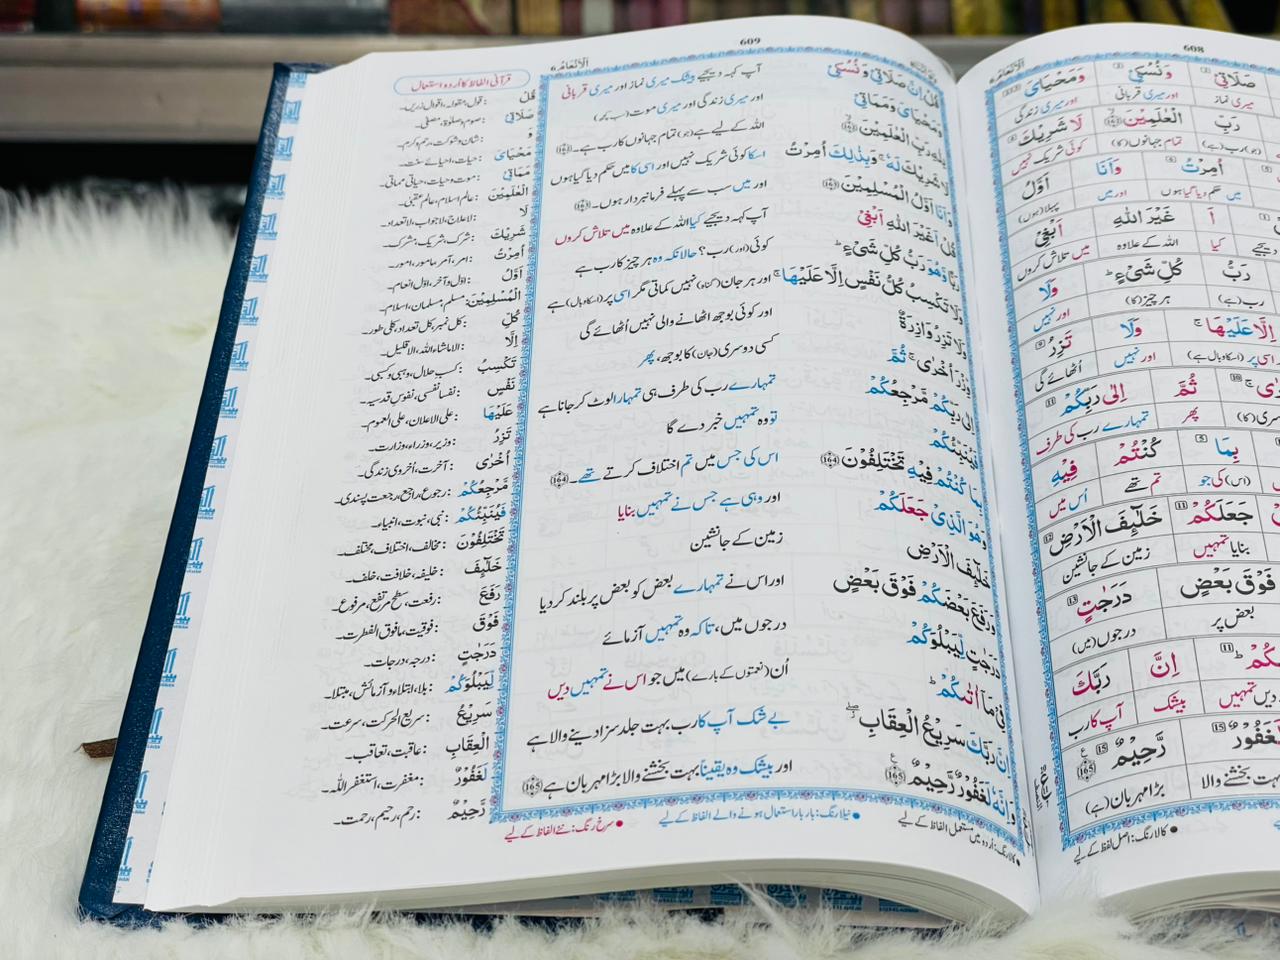 608
اَلْاَنْعَام 6
صَلَاتِیْ وَنُسُكِیْ وَمَحْیَایَ
میری نماز اور میری قربانی اور میری زندگی
رَبِّ الْعٰلَمِیْنَ لَا شَرِیْكَ
(جو) رب (ہے) تمام جہانوں (کا) کوئی شریک نہیں
اُمِرْتُ وَاَنَا اَوَّلُ
میں حکم دیا گیا ہوں اور میں پہلا (ہوں)
اَ غَیْرَ اللّٰهِ اَبْغِیْ
کیا اللہ کے علاوہ میں تلاش کروں
رَبُّ كُلِّ شَیْءٍ وَلَا
رب (ہے) ہر چیز (کا) اور نہیں
اِلَّا عَلَیْهَا وَلَا تَزِرُ
اسی پر (اسکا وبال ہے) اور نہیں اُٹھائے گی
ثُمَّ اِلٰی رَبِّكُمْ
پھر تمہارے رب کی طرف
بِمَا كُنْتُمْ فِیْهِ
(اس) کی جو تم تھے اُس میں
جَعَلَكُمْ خَلٰٓئِفَ الْاَرْضِ
بنایا تمہیں زمین کے جانشین
فَوْقَ بَعْضٍ دَرَجٰتٍ
بعض پر درجوں (میں)
اِنَّ رَبَّكَ
بیشک آپ کا رب
رَّحِیْمٌ
بہت بخشنے والا بڑا مہربان (ہے)
● کالا رنگ: اصل لفظ کے لیے
609
اَلْاَنْعَام 6
قُلْ اِنَّ صَلَاتِیْ وَنُسُكِیْ
آپ کہہ دیجیے بیشک میری نماز اور میری قربانی
وَمَحْیَایَ وَمَمَاتِیْ
اور میری زندگی اور میری موت (سب کچھ)
لِلّٰهِ رَبِّ الْعٰلَمِیْنَ
اللہ کے لیے ہے (جو) تمام جہانوں کا رب ہے۔
لَا شَرِیْكَ لَهٗ وَبِذٰلِكَ اُمِرْتُ
اسکا کوئی شریک نہیں اور اسی کا میں حکم دیا گیا ہوں
وَاَنَا اَوَّلُ الْمُسْلِمِیْنَ
اور میں سب سے پہلے فرمانبردار ہوں۔
قُلْ اَغَیْرَ اللّٰهِ اَبْغِیْ
آپ کہہ دیجیے کیا اللہ کے علاوہ میں تلاش کروں
رَبًّا وَّهُوَ رَبُّ كُلِّ شَیْءٍ
کوئی (اور) رب؟ حالانکہ وہ ہر چیز کا رب ہے
وَلَا تَكْسِبُ كُلُّ نَفْسٍ اِلَّا عَلَیْهَا
اور ہر جان (گناہ) نہیں کماتی مگر اسی پر (اسکا وبال) ہے
وَلَا تَزِرُ وَازِرَةٌ
اور کوئی بوجھ اٹھانے والی نہیں اُٹھائے گی
وِّزْرَ اُخْرٰی ثُمَّ
کسی دوسری (جان) کا بوجھ، پھر
اِلٰی رَبِّكُمْ مَّرْجِعُكُمْ
تمہارے رب کی طرف ہی تمہارا لوٹ کر جانا ہے
فَیُنَبِّئُكُمْ
تو وہ تمہیں خبر دے گا
بِمَا كُنْتُمْ فِیْهِ تَخْتَلِفُوْنَ 164
اس کی جس میں تم اختلاف کرتے تھے۔ 164
وَهُوَ الَّذِیْ جَعَلَكُمْ
اور وہی ہے جس نے تمہیں بنایا
خَلٰٓئِفَ الْاَرْضِ
زمین کے جانشین
وَرَفَعَ بَعْضَكُمْ فَوْقَ بَعْضٍ
اور اس نے تمہارے بعض کو بعض پر بلند کر دیا
دَرَجٰتٍ لِّیَبْلُوَكُمْ
درجوں میں، تاکہ وہ تمہیں آزمائے
فِیْ مَاۤ اٰتٰىكُمْ
اُن (نعمتوں کے بارے) میں جو اس نے تمہیں دیں
اِنَّ رَبَّكَ سَرِیْعُ الْعِقَابِ
بے شک آپ کا رب بہت جلد سزا دینے والا ہے
وَاِنَّهٗ لَغَفُوْرٌ رَّحِیْمٌ 165
اور بیشک وہ یقیناً بہت بخشنے والا بڑا مہربان ہے 165
● کالا رنگ: اُردو میں مستعمل الفاظ کے لیے
● نیلا رنگ: بار بار استعمال ہونے والے الفاظ کے لیے
● سرخ رنگ: نئے الفاظ کے لیے
قرآنی الفاظ کا اُردو استعمال
قُلْ : قول، مقولہ، اقوال زریں۔
صَلَاتِیْ : صوم و صلوٰۃ، مصلّٰی۔
وَ : شان و شوکت، رحم و کرم۔
مَحْیَایَ : حیات، احیائے سنت۔
مَمَاتِیْ : موت و حیات، حیاتی مماتی۔
الْعٰلَمِیْنَ : عالم اسلام، عالم عقبیٰ۔
لَا : لاعلاج، لاجواب، لاتعداد۔
شَرِیْكَ : شرک، شریک، شرک۔
اُمِرْتُ : امر، آمر، مامور، امور۔
اَوَّلُ : اوّل و آخر، اوّل انعام۔
الْمُسْلِمِیْنَ : مسلم، مسلمان، اسلام۔
كُلِّ : کل نمبر، کل تعداد، کلی طور۔
اِلَّا : الا ماشاء اللہ، الا قلیل۔
تَكْسِبُ : کسب حلال، وہبی و کسبی۔
نَفْسٍ : نفسا نفسی، نفوس قدسیہ۔
عَلَیْهَا : علی الاعلان، علی العموم۔
تَزِرُ : وزیر، وزراء، وزارت۔
اُخْرٰی : آخرت، اُخروی زندگی۔
مَّرْجِعُكُمْ : رجوع، راجع، رجعت پسندی۔
فَیُنَبِّئُكُمْ : نبی، نبوت، انبیاء۔
تَخْتَلِفُوْنَ : مخالف، اختلاف، مختلف۔
خَلٰٓئِفَ : خلیفہ، خلافت، خلف۔
رَفَعَ : رفعت، سطح مرتفع، مرفوع۔
فَوْقَ : فوقیت، مافوق الفطرت۔
دَرَجٰتٍ : درجہ، درجات۔
لِّیَبْلُوَكُمْ : بلا، ابتلاء و آزمائش، مبتلا۔
سَرِیْعُ : سریع الحرکت، سرعت۔
الْعِقَابِ : عاقبت، تعاقب۔
لَغَفُوْرٌ : مغفرت، استغفر اللہ۔
رَّحِیْمٌ : رحم، رحیم، رحمت۔